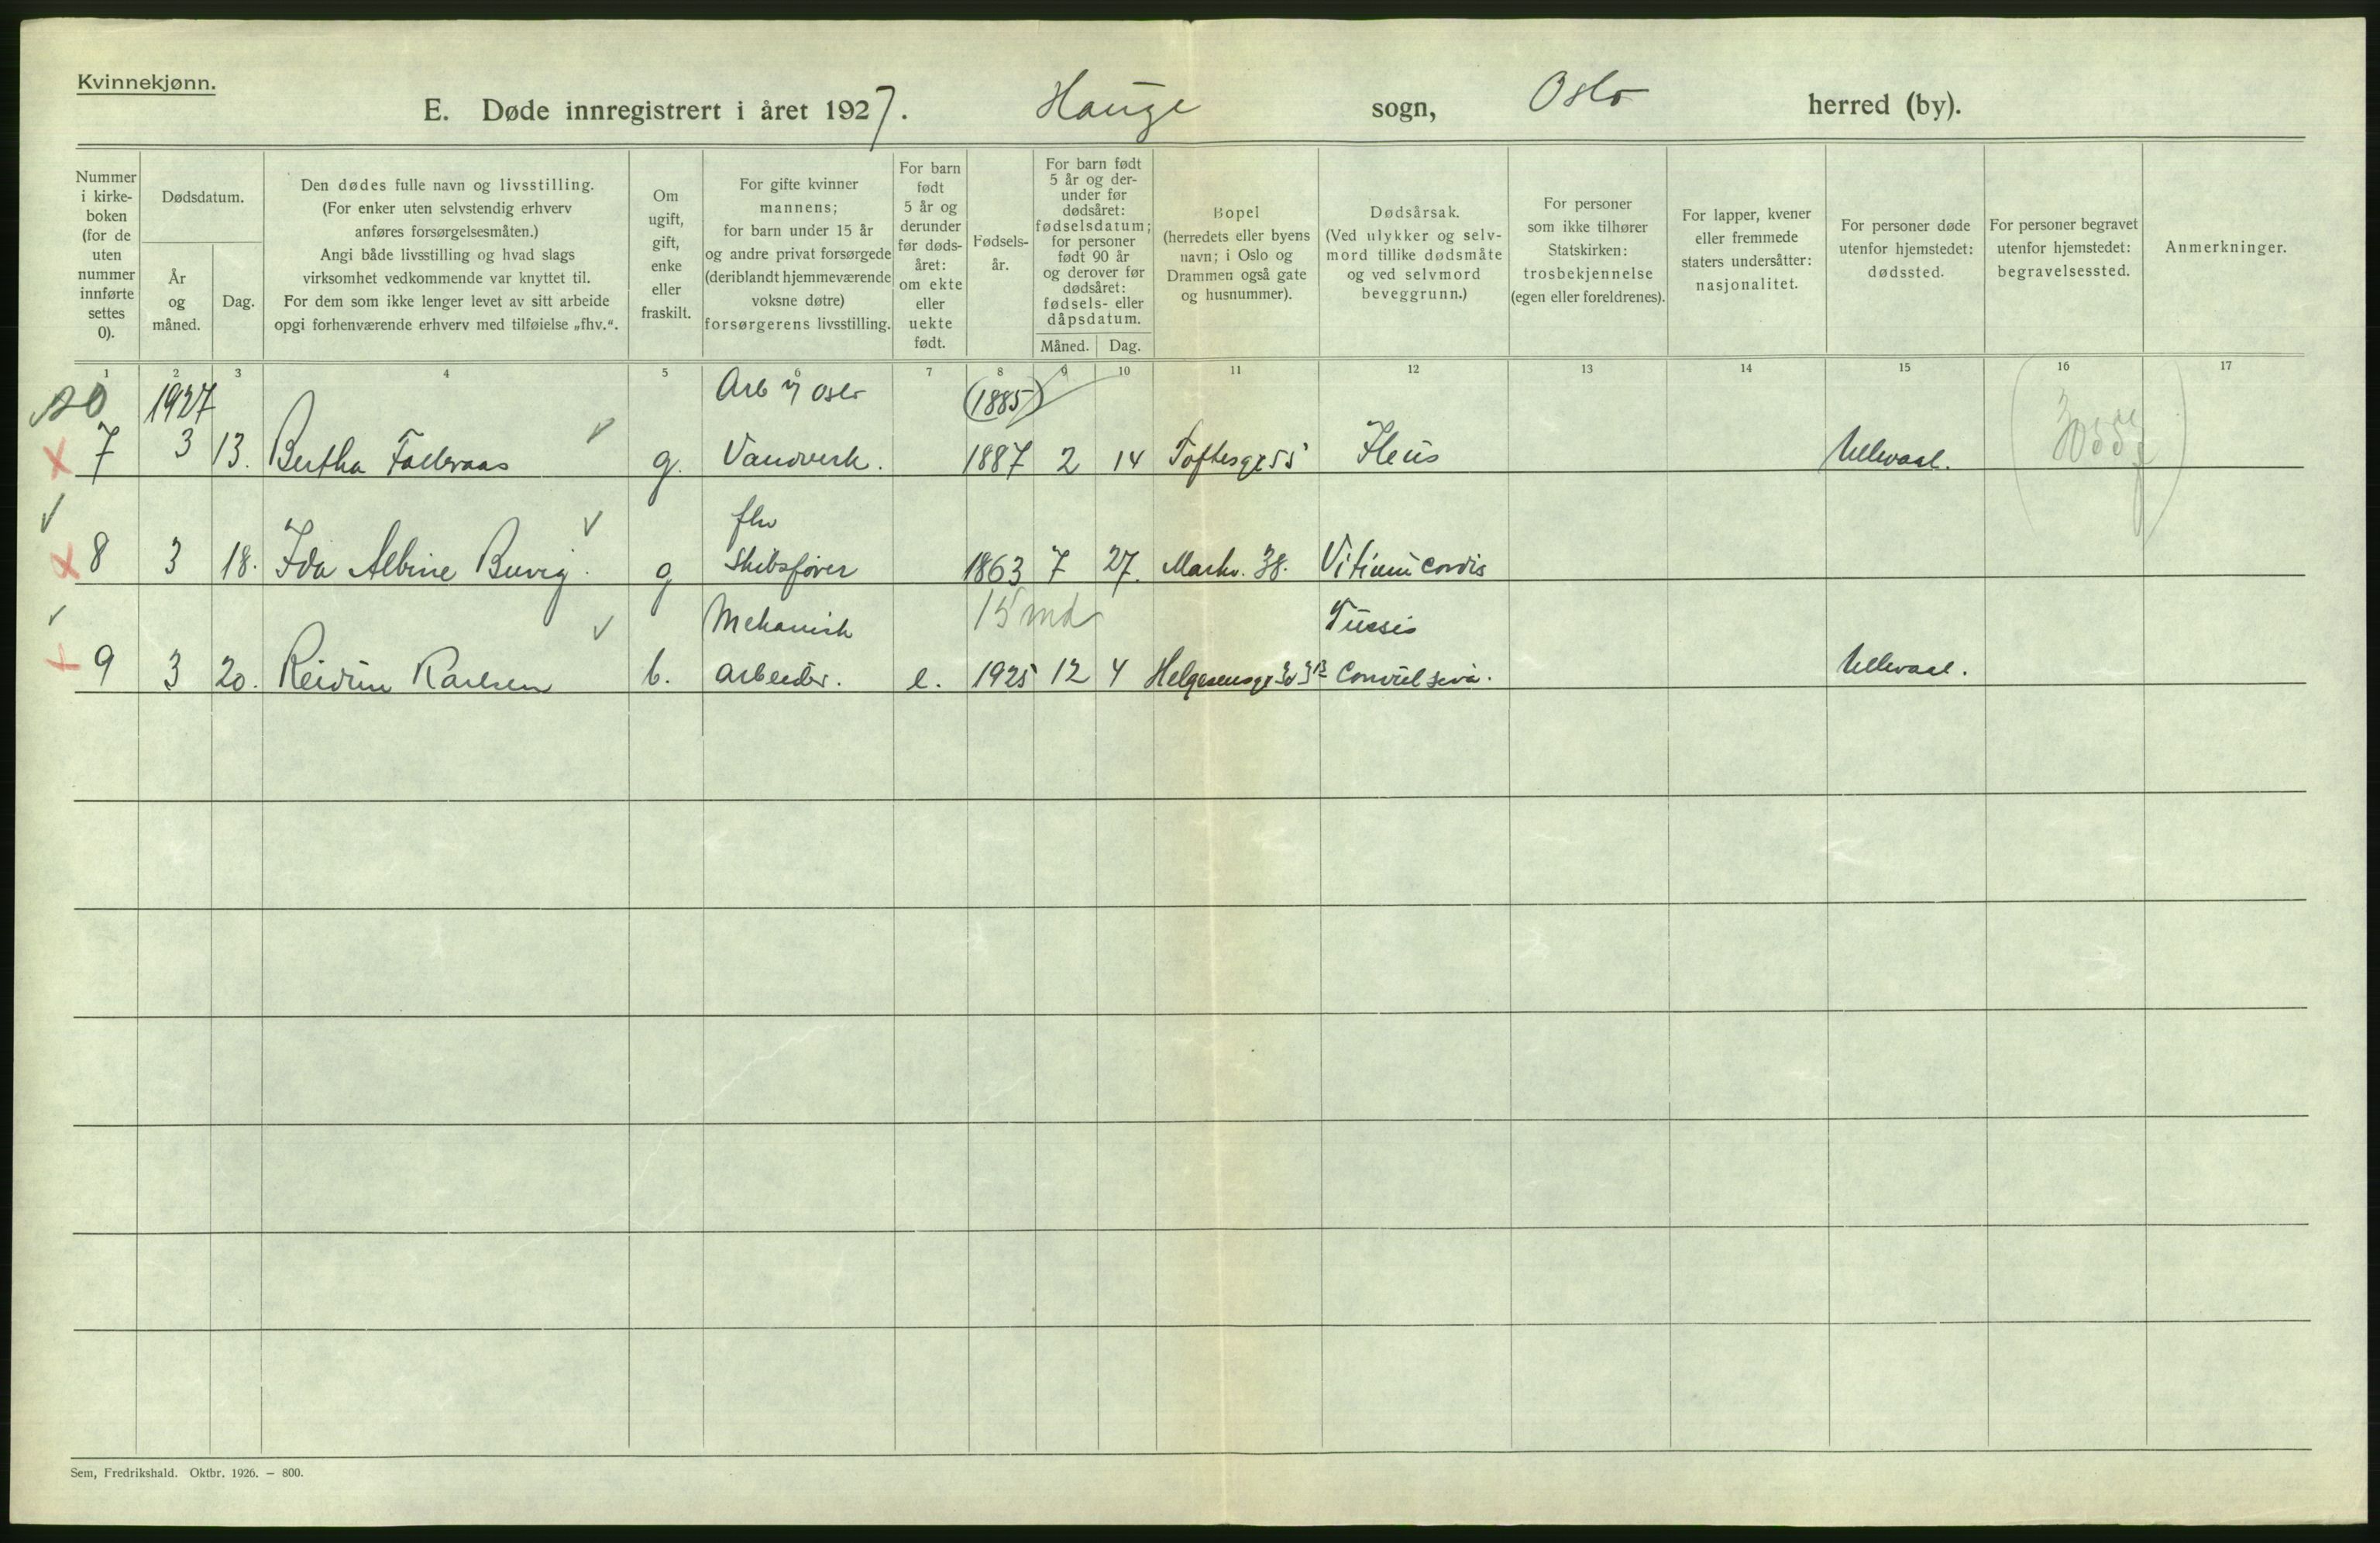 Kvinnekjønn.
E. Døde innregistrert i året 1927. Hauge sogn, Oslo herred (by).
Nummer i kirke- boken (for de uten nummer innførte settes 0).
Dødsdatum.
År og måned.
Dag.
Den dødes fulle navn og livsstilling.
(For enker uten selvstendig erhverv
anføres forsørgelsesmåten.)
Angi både livsstilling og hvad slags
virksomhet vedkommende var knyttet til.
For dem som ikke lenger levet av sitt arbeide
opgi forhenværende erhverv med tilføielse „fhv.“.
Om ugift, gift, enke eller fraskilt.
For gifte kvinner
mannens;
for barn under 15 år
og andre privat forsørgede
(deriblandt hjemmeværende
voksne døtre)
forsørgerens livsstilling.
For barn født 5 år og derunder før døds- året: om ekte eller uekte født.
Fødsels- år.
For barn født
5 år og der-
under før
dødsåret:
fødselsdatum;
for personer
født 90 år
og derover før
dødsåret:
fødsels- eller
dåpsdatum.
Måned. Dag.
Bopel
(herredets eller byens
navn; i Oslo og
Drammen også gate
og husnummer).
Dødsårsak.
(Ved ulykker og selv-
mord tillike dødsmåte
og ved selvmord
beveggrunn.)
For personer
som ikke tilhører
Statskirken:
trosbekjennelse
(egen eller foreldrenes).
For lapper, kvener
eller fremmede
staters undersåtter:
nasjonalitet.
For personer døde
utenfor hjemstedet:
dødssted.
For personer begravet
utenfor hjemstedet:
begravelsessted.
Anmerkninger.
1 2 3 4 5 6 7 8 9 10 11 12 13 14 15 16 17
1927 Arb v Oslo (1885)
7 3 13. Bertha g. Vandverk. 1887 2 14 Toftesgt 55 Ileus Ullevaal.
fhv
8 3 18. Ida Albine Buvig. g Skibsfører 1863 7 27. Markv. 38. Vitium cordis
Mekanisk 15 md Tussis
9 3 20. Reidun Karlsen b. arbeider. e. 1925 12 4 Helgesensgt Ullevaal.
Sem, Fredrikshald. Oktbr. 1926. — 800.